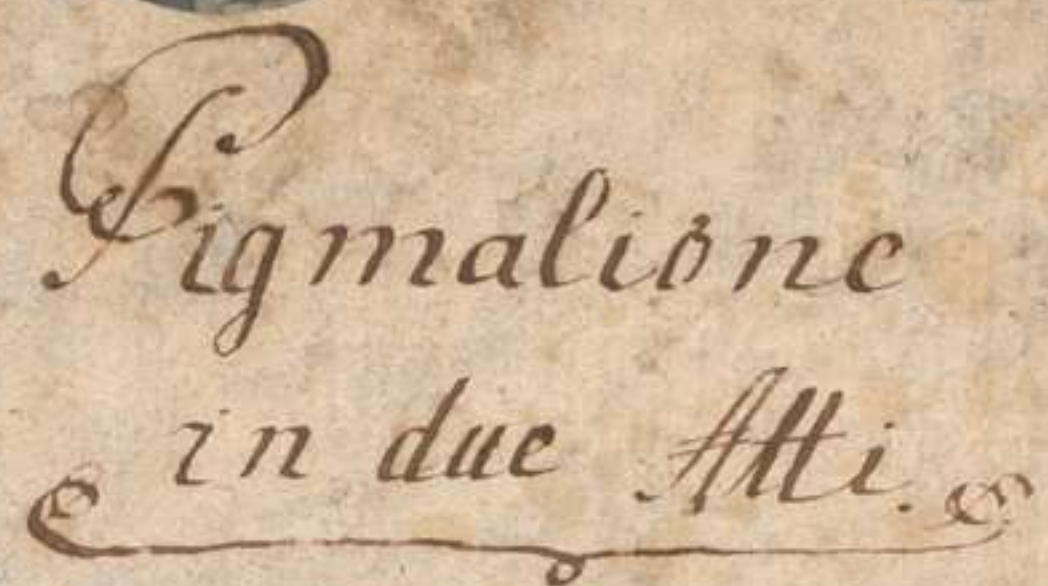 Pigmalione
in due Atti.